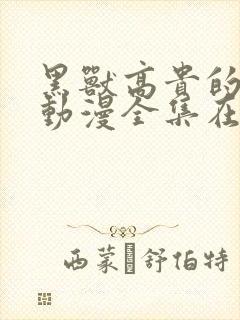 黑獸高貴的
動漫全集在
西蒙·舒伯特